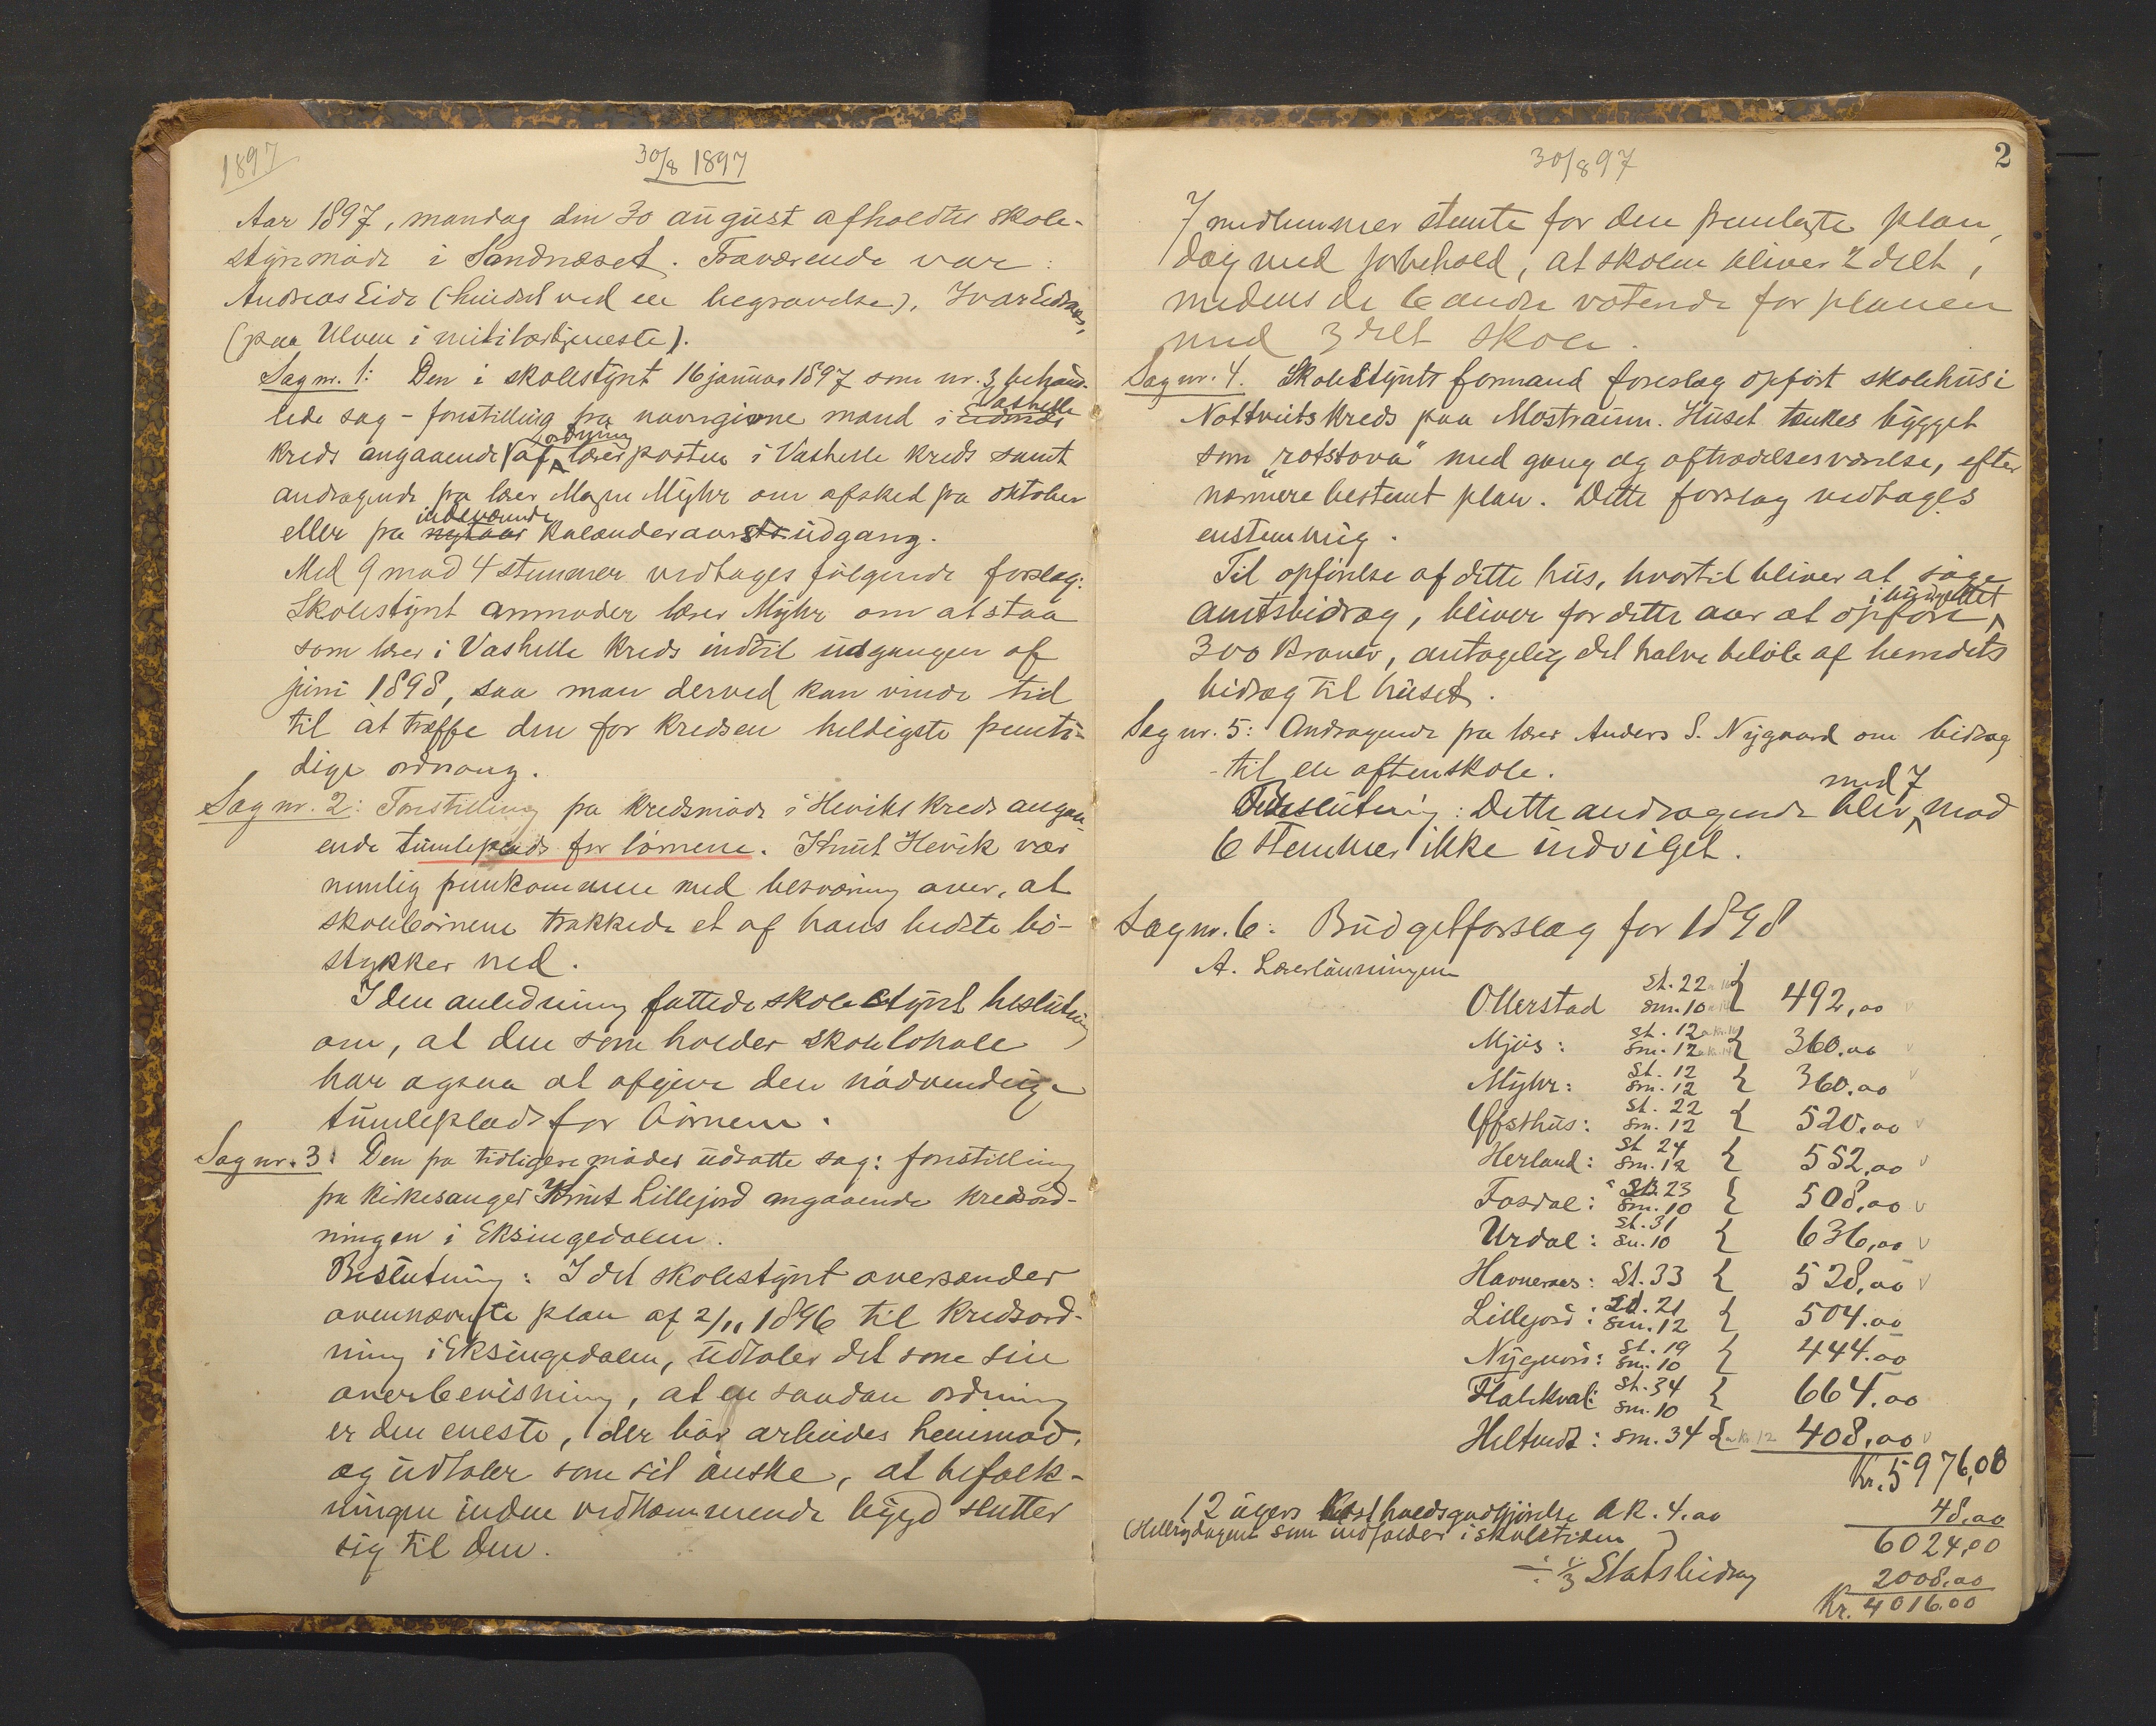 1897
30/8 1897
Aar 1897, mandag den 30 august afholdtes skole-
styremøde i Sandnæset. Fraværende var:
Andreas Eide (hindret ved en begravelse), Ivar Eidnæs,
(paa Ulven i militærtjeneste).
Sag nr. 1: Den i skolestyret 16 januar 1897 som nr. 3 behand-
lede sag - forestilling fra navngivne mænd i Eidnæs Vashelle
kreds angaaende af ordning lærerposten i Vashelle kreds samt
andragende fra lærer Magne Myhr om afsked fra oktober
eller fra nytaar indeværende kalenderaars udgang.
Med 9 mod 4 stemmer vedtages følgende forslag:
Skolestyret anmoder lærer Myhr om at staa
som lærer i Vashelle kreds indtil udgangen af
juni 1898, saa man derved kan vinde tid
til at træffe den for kredsen heldigste fremti-
dige ordning.
Sag nr. 2: Forestilling fra kredsmøde i Heviks kreds angaa-
ende tumleplads for børnene. Knut Hevik var
nemlig fremkommen med besværing over, at
skolebørnene trakkede et af hans bedste bø-
stykker ned.
I den anledning fattede skolestyret beslutning
om, at den som holder skolelokale
har ogsaa at afgive den nødvendige
tumleplads for børnene.
Sag nr. 3: Den fra tidligere møder udsatte sag: forestilling
fra kirkesanger Knut Lillejord angaaende kredsord-
ningen i Eksingedalen.
Beslutning: I det skolestyret oversender
ovennævnte plan af 2/11 1896 til kredsord-
ning i Eksingedalen, udtaler det som sin
overbevisning, at en saadan ordning
er den eneste, der bør arbeides henimod,
og udtaler som sit ønske, at befolk-
ningen inden vedkommende bygd slutter
sig til den.
30/8 97
2
7 medlemmer stemte for den fremlagte plan,
dog med forbehold, at skolen bliver 2 delt,
medens de 6 andre voterede for planen
med 3 delt skole.
Sag nr. 4. Skolestyrets formand foreslog opført skolehus i
Nottveits kreds paa Mostraum. Huset tænkes bygget
som "røtstova" med gang og aftrædelsesværelse, efter
nærmere bestemt plan. Dette forslag vedtages
enstemmig.
Til opførelse af dette hus, hvortil bliver at søge
amtsbidrag, bliver for dette aar at opføre i budgettet
300 Kroner, antagelig det halve beløb af herredets
bidrag til huset.
Sag nr. 5: Andragende fra lærer Anders S. Nygaard om bidrag
til en aftenskole.
Beslutning: Dette andragende blev med 7 mod
6 stemmer ikke indvilget.
Sag nr. 6: Budgetforslag for 1898
A. Lærerlønningene
Ollerstad St. 22 Sm. 10 } 492,00
Mjøs: St. 12 Sm. 12 } 360.00
Myhr: St. 12 Sm. 12 } 360.00
Offsthus: St. 22 Sm. 12 } 520,00
Herland: St 24 Sm. 12 } 552,00
Fosdal: St. 23 Sm. 10 } 508,00
Urdal: St. 31 Sm. 10 } 636,00
Havneraas: St. 33 } 528,00
Lillejord: St. 21 Sm. 12 } 504.00
Nygaard: St. 19 Sm. 10 } 444.00
Flatekval: St. 34 Sm. 10 } 664.00
Heltvedt: Sm. 34 } a Kr. 12 408,00
Kr. 5976,00
12 ugers kostholdsgodtgjørelse a K. 4.00 48,00
(Helligdagene som indfalder i skoletiden)
6024,00
÷ 1/3 Statsbidrag 2008.00
Kr. 4016.00